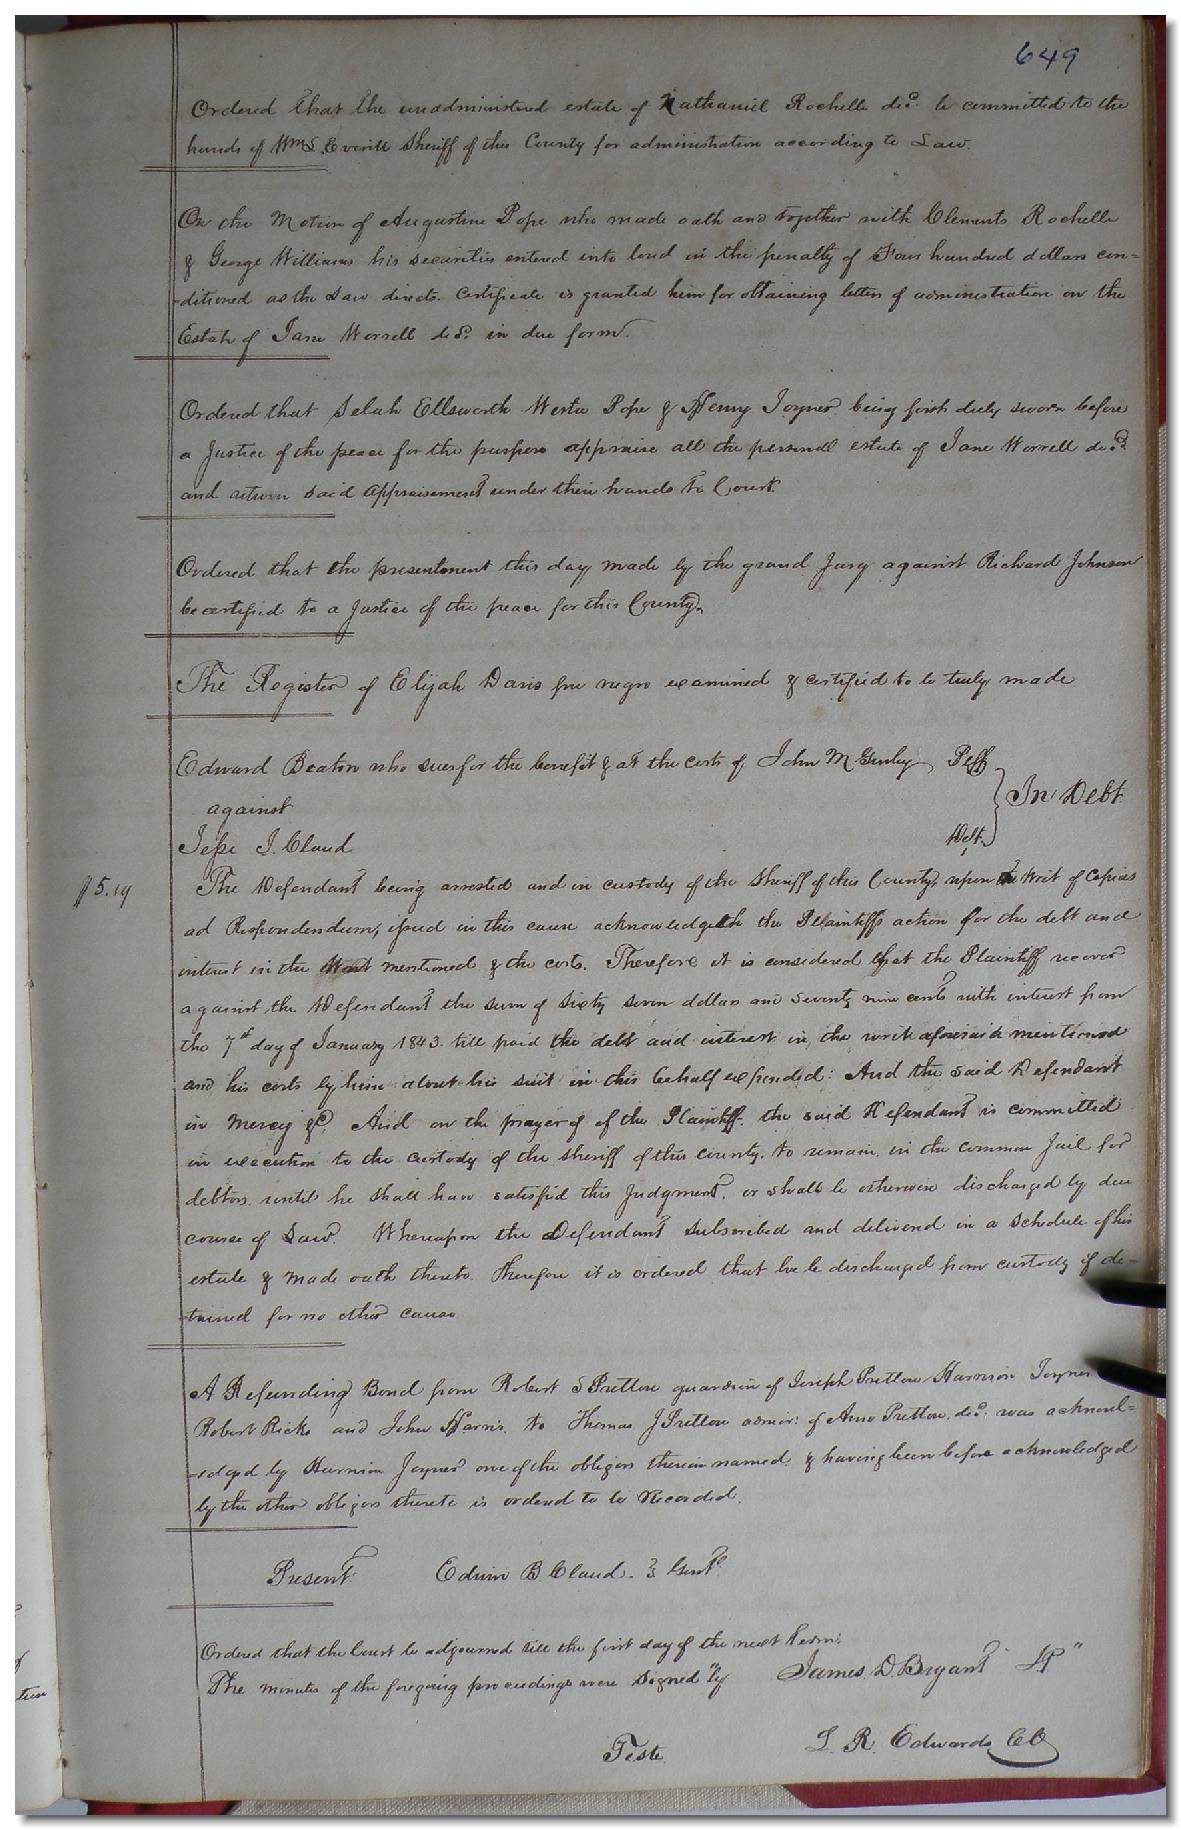 649
Ordered that the unadministered estate of Nathaniel Rochelle decd. be committed to the
hands of Wm S. Everitt Sheriff of this County for administration according to Law.
On the Motion of Augustine Pope who made oath and together with Clements Rochelle
& George Williams his securities entered into bond in the penalty of Four hundred dollars con=
=ditioned as the Law directs. Certificate is granted him for obtaining letters of administration on the
Estate of Jane Worrell decd. in due form.
Ordered that Selah Ellsworth Pope & Henry Joyner being first duly sworn before
a Justice of the peace for the purpose appraise all the personal estate of Jane Worrell decd.
and return said appraisement under their hands to Court.
Ordered that the presentment this day made by the grand Jury against Richard Johnson
be certified to a Justice of the peace for this County.
The Register of Elijah Davis free negro examined & certified to be truly made
Edward Beaton who sues for the benefit & at the costs of John M Gurley Plff
against
In Debt
Jesse J. Claud Deft.
$5.19
The Defendant being arrested and in custody of the Sheriff of this County, upon the Writ of Capias
ad Respondendum, issued in this cause acknowledgeth the Plaintiffs action for the debt and
interest in the Writ mentioned & the costs. Therefore it is considered that the Plaintiff recover
against the Defendant the sum of Sixty seven dollars and Seventy nine cents with interest from
the 7th day of January 1843 till paid the debt and interest in the writ aforesaid mentioned
and his costs by him about his suit in this behalf expended: And the said Defendant
in Mercy &c. And on the prayer of of the Plaintiff. the said Defendant is committed
in execution to the custody of the Sheriff of this county. to remain, in the common Jail for
debtors until he shall have satisfied this Judgment, or shall be otherwise discharged by due
course of Law. Whereupon the Defendant subscribed and delivered in a Schedule of his
estate & made oath thereto. Therefore it is ordered that he be discharged from custody if de=
=tained for no other cause
A Refunding Bond from Robert S Pretlow guardian of Joseph Pretlow Harrison Joyner
Robert Ricks and John Harris, to Thomas J Pretlow admor: of Pretlow, decd. was acknowl=
=edged by Harrison Joyner one of the obligors therein named. & having been before acknowledged
by the other obligors thereto is ordered to be Recorded.
Present Edwin B. Claud. Gent
Ordered that the Court be adjourned till the first day of the next term.
The minutes of the foregoing proceedings were Signed by James D. Bryant JP
Teste L. R. Edwards CC